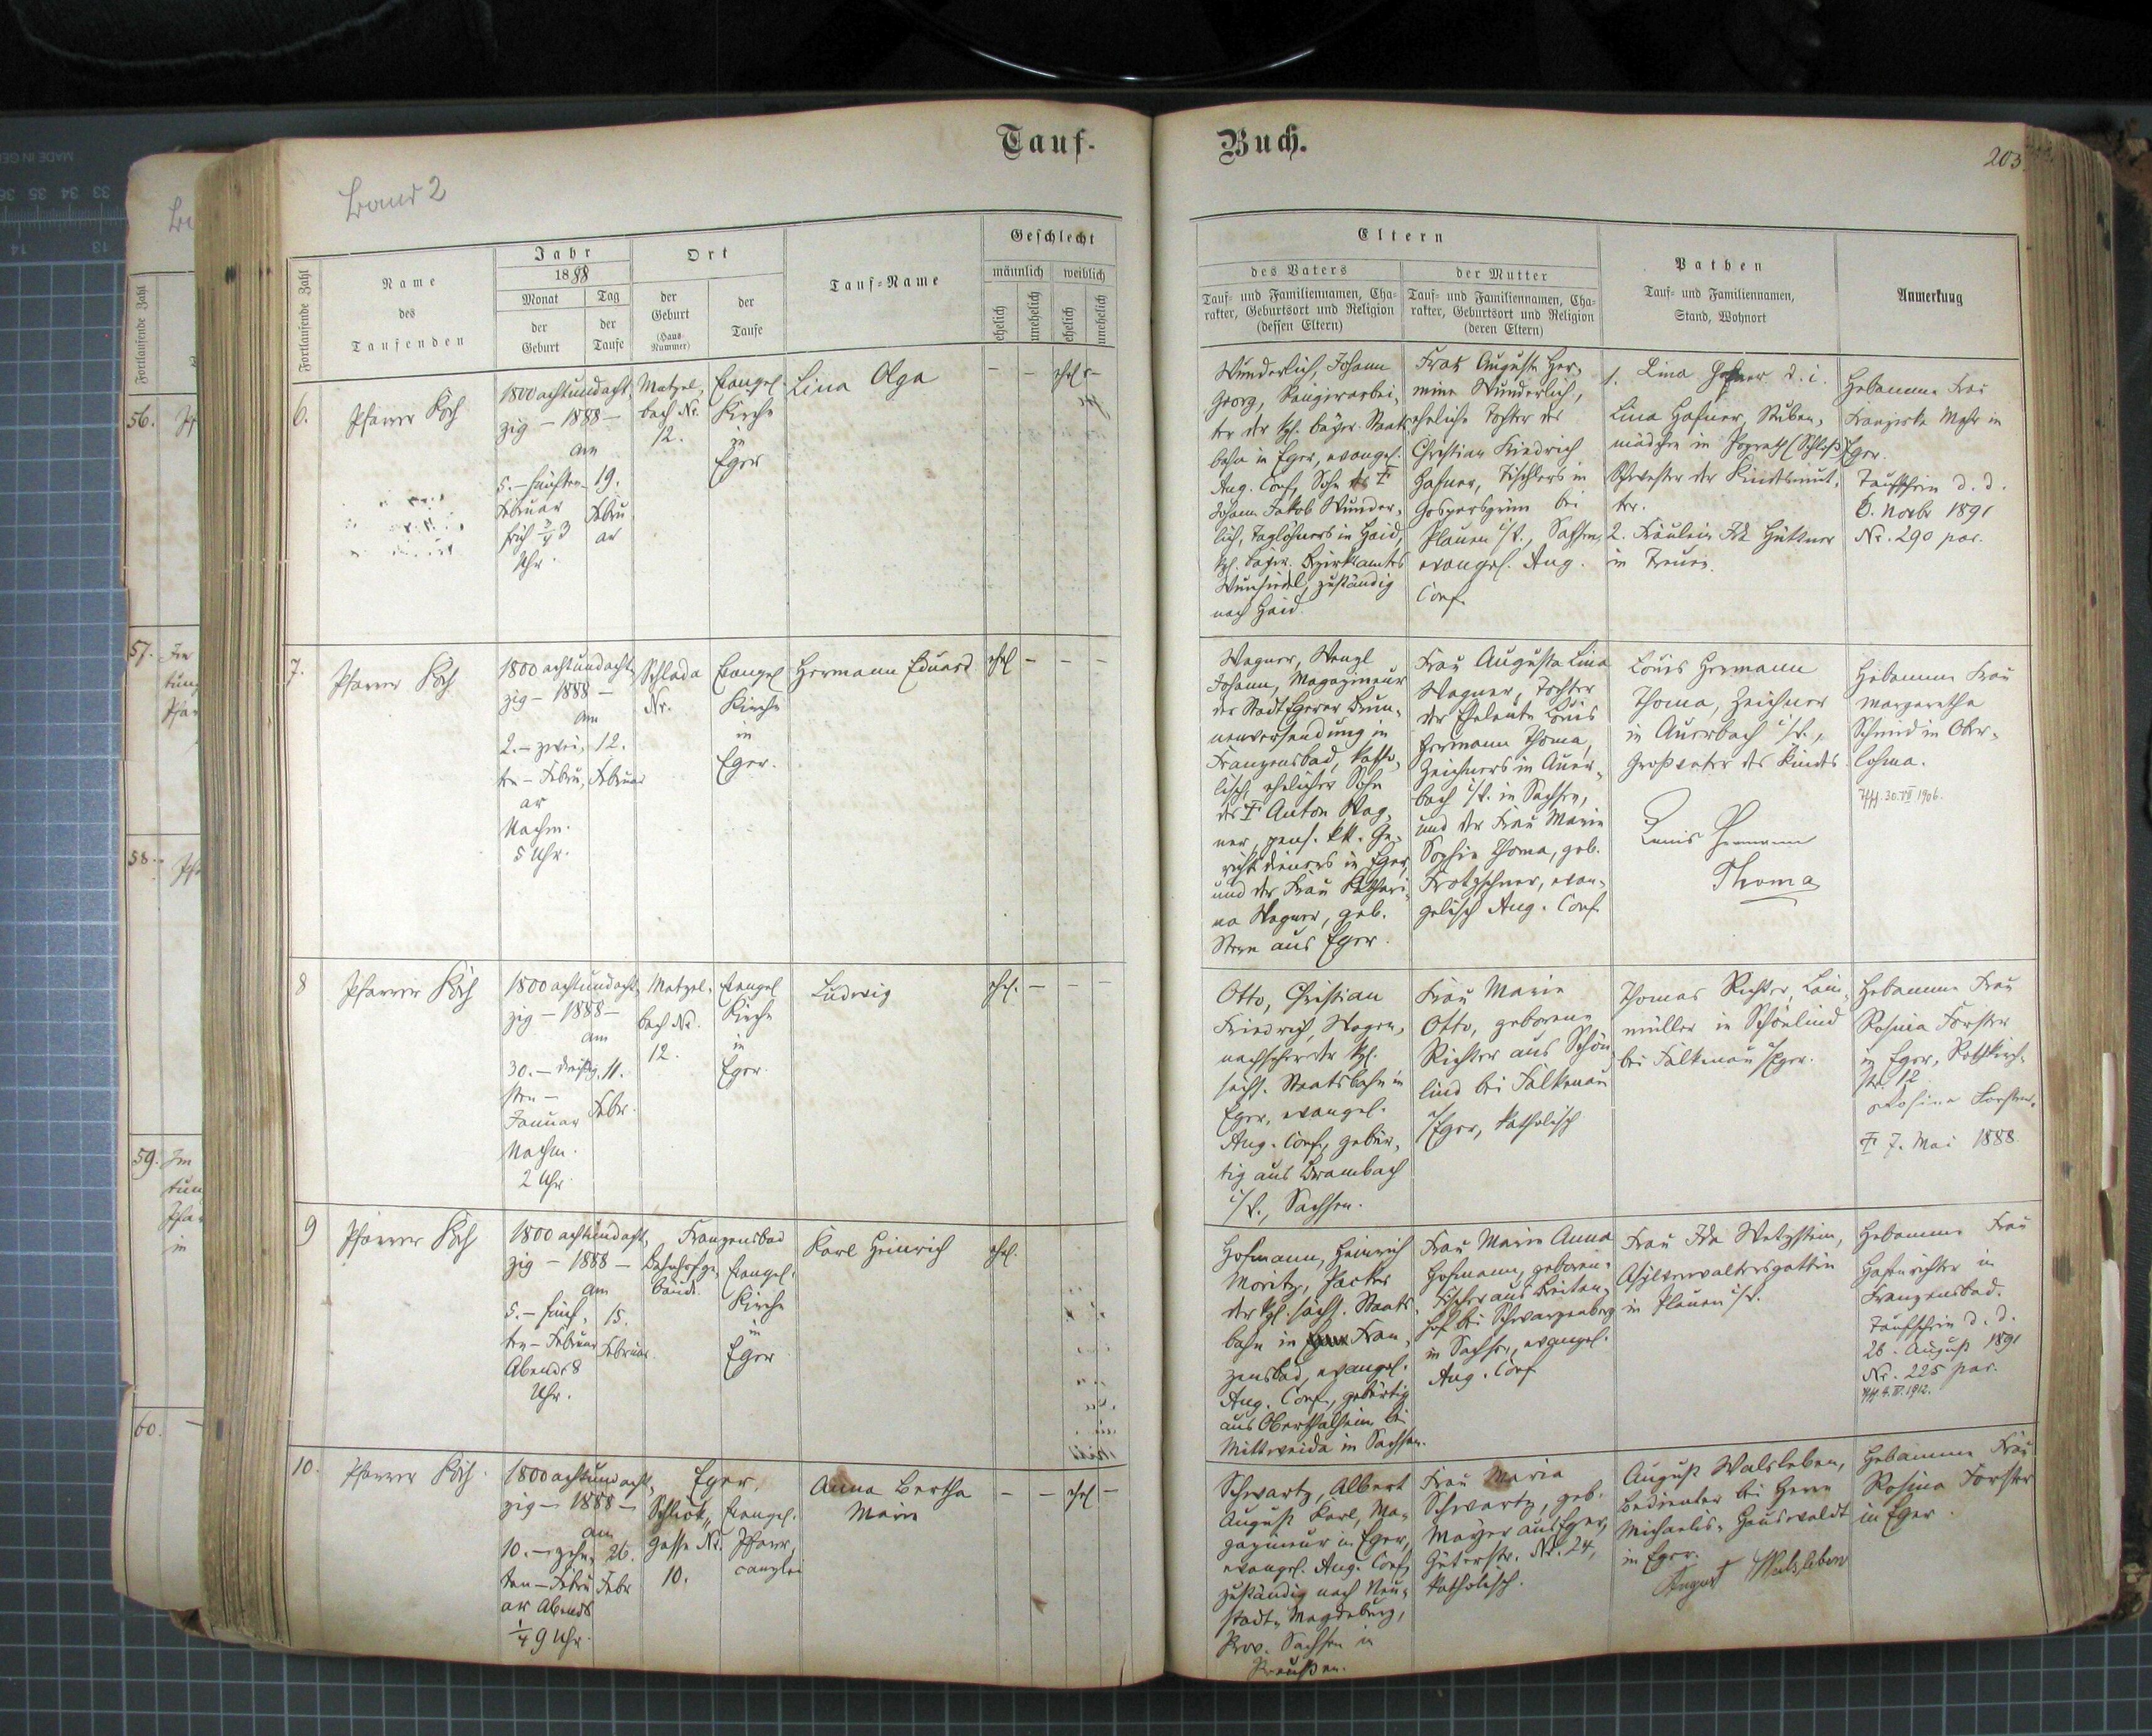 Tauf-
Buch.
203
Band 2
Fortlaufende Zahl
Name
des
Taufenden
Jahr
1888
Monat
der
Geburt
Tag
der
Taufe
Ort
der
Geburt
(Haus-
Nummer)
der
Taufe
Tauf-Name
Geschlecht
männlich
weiblich
ehelich
unehelich
ehelich
unehelich
Eltern
des Vaters
Tauf- und Familiennamen, Cha-
rakter, Geburtsort und Religion
(dessen Eltern)
der Mutter
Tauf- und Familiennamen, Cha-
rakter, Geburtsort und Religion
(deren Eltern)
Pathen
Tauf- und Familiennamen,
Stand, Wohnort
Anmerkung
6.
Pfarrer Koch
1800 achtundacht-
zig – 1888 –
am
5. – fünften
Februar
früh 3/4 3
Uhr.
19.
Febru
ar
Matzel-
bach Nr.
12.
Evangel.
Kirche
zu
Eger
Lina Olga
– –
Wunderlich, Johann
Georg, Rangirarbei-
ter der kgl. bayer. Staats
bahn in Eger, evangel.
Aug. Conf., Sohn des †
Johann Jakob Wunder-
lich, Taglöhners in Haid,
kgl. bayr. Bezirksamtes
Wunsiedel, zuständig
nach Haid.
Frau Auguste Her-
mine Wunderlich,
eheliche Tochter des
Christian Friedrich
Hafner, Tischlers in
bei
Plauen i/V., Sachsen,
evangel. Aug.
Conf.
1. Lina Hafner d. i.
Lina Hafner, Stuben-
mädchen in (Schloß)
Schwester der Kindesmut-
ter.
2. Fräulein Ida Hüttner
in Treuen.
Hebamme Frau
Franziska Mehr in
Eger.
Taufschein d. d.
6. Novbr 1891
Nr. 290 par.
7.
Pfarrer Koch
1800 achtundacht-
zig – 1888 –
am
2. – zwei-
ten – Febru-
ar
Nachm.
5 Uhr.
12.
Februar
Schlada
Nr.
Evangel
Kirche
in
Eger.
Hermann Eduard
ehel – – –
Wagner, Wenzl
Johann, Magazineur
der Stadt Egerer Brun-
nenversendung in
Franzensbad, katho-
lisch, ehelicher Sohn
des † Anton Wag-
ner, pens. kk. Ge-
richtsdieners in Eger,
und der Frau Kathari-
na Wagner, geb.
aus Eger.
Frau Augusta Lina
Wagner, Tochter
der Eheleute Louis
Hermann Thoma,
Zeichners in Auer-
bach i/V. in Sachsen,
und der Frau Marie
Sophie Thoma, geb.
Trotzschner, evan-
gelisch Aug. Conf.
Louis Hermann
Thoma, Zeichner
in Auerbach i/V.,
Großvater des Kindes
Louis Hermann
Thoma
Hebamme Frau
Margaretha
Schmid in Ober-
lohma.
30. VII 1906.
8
Pfarrer Koch
1800 achtundacht-
zig – 1888 –
am
30. – dreißig-
sten –
Januar
Nachm.
2 Uhr.
11.
Febr.
Matzel-
bach Nr.
12.
Evangel
Kirche
in
Eger.
Ludwig
ehel. – – –
Otto, Christian
Friedrich, Wagen-
nachseher der kgl.
sächs. Staatsbahn in
Eger, evangel.
Aug. Conf., gebür-
tig aus Brambach
i/V., Sachsen.
Frau Marie
Otto, geborene
Richter aus Schön-
lind bei Falkenau
a/Eger, katholisch
Thomas Richter,
müller in Schönlind
bei Falkenau a/Eger.
Hebamme Frau
Rosina Forster
in Eger,
12
Rosina Forster.
† 7. Mai 1888
9
Pfarrer Koch
1800 achtundacht-
zig – 1888 –
am
5. – fünf-
ten – Februar
Abends 8
Uhr.
15.
Februar.
Franzensbad
Bahnhofge-
bäude.
Evangel.
Kirche
in
Eger
Karl Heinrich
ehel.
Hofmann, Heinrich
Moritz, Packer
der kgl. sächs. Staats-
bahn in Fran-
zensbad, evangel.
Aug. Conf., gebürtig
aus Oberthalheim bei
Mittweida in Sachsen.
Frau Marie Anna
Hofmann, geborene
Fischer aus Breiten-
hof bei Schwarzenberg
in Sachsen, evangel.
Aug. Conf.
Frau Ida Wetzstein,
Asylverwaltersgattin
in Plauen i/V.
Hebamme Frau
Hafenrichter in
Franzensbad.
Taufschein d. d.
26. August 1891
Nr. 225 par.
1912.
10.
Pfarrer Koch.
1800 achtundacht-
zig – 1888 –
am
10. – zehn-
ten – Febru
ar Abends
1/4 9 Uhr.
26.
Febr
Eger,
Schlick-
gasse Nr.
10.
Evangel.
Pfarr-
canzlei
Anna Bertha
Marie
– – ehel –
Schwartz, Albert
August Karl, Ma-
gazineur in Eger,
evangel. Aug. Conf.,
zuständig nach Neu-
stadt-Magdeburg,
Prov. Sachsen in
Preußen.
Frau Maria
Schwartz, geb.
Mayer aus Eger,
Nr. 24,
katholisch.
August Walsleben,
Bedienter bei Herrn
Michaelis-Hauswaldt
in Eger.
August Walsleben
Hebamme Frau
Rosina Forster
in Eger.
56.
57.
58.
59.
60.